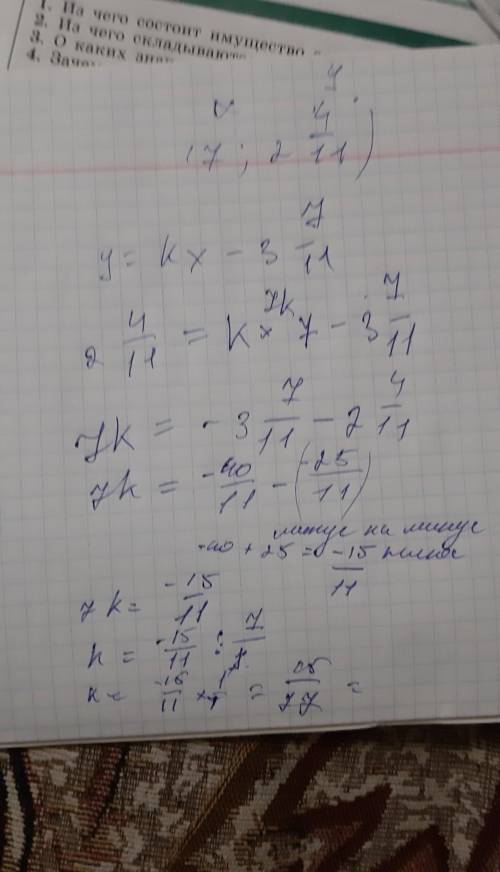 1. Из чего состоит имущество
2. Из чего складывают
3. О каких
4. Зачем
x y
(7; 2 4/11)
y = kx - 3 7/11
2 4/11 = k × 7 - 3 7/11
7k
7k = -3 7/11 - 2 4/11
7k = -40/11 - (-25/11)
минус на минус
-40 + 25 = -15/11 плюс
7k = -15/11
k = -15/11 : 7/1
k = -15/11 × 1/7 = 15/77 =